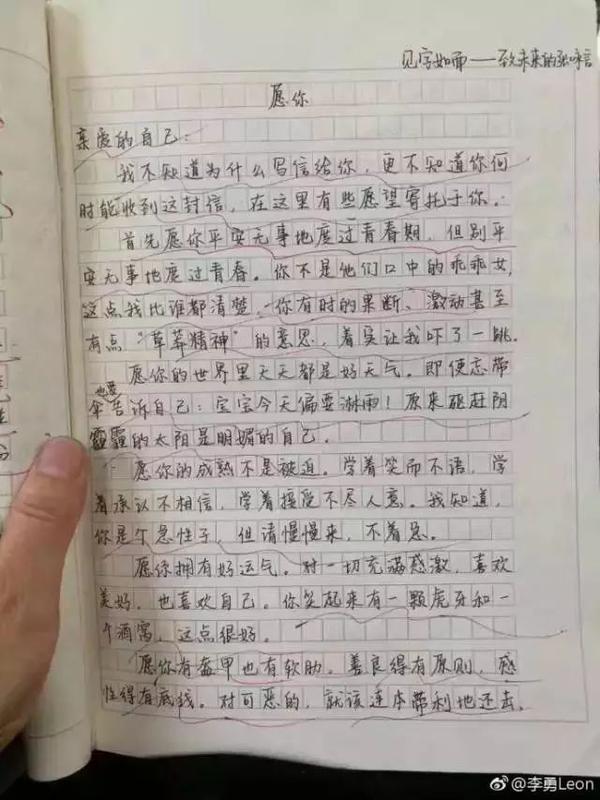 见字如面——致未来的张嘻言
愿你
亲爱的自己：
我不知道为什么写信给你，更不知道你何
时能收到这封信，在这里有些愿望寄托于你：
首先愿你平安无事地度过青春期，但别平
安无事地度过青春。你不是他们口中的乖乖女，
这点我比谁都清楚，你有时的果断、激动甚至
有点“草莽精神”的意思，着实让我吓了一跳。
愿你的世界里天天都是好天气。即使忘带
伞也要告诉自己：宝宝今天偏要淋雨！原来驱赶阴
霾的太阳是明媚的自己。
愿你的成熟不是被迫。学着笑而不语，学
着承认不相信，学着接受不尽人意。我知道，
你是个急性子，但请慢慢来，不着急。
愿你拥有好运气。对一切充满感激，喜欢
美好，也喜欢自己。你笑起来有一颗虎牙和一
个酒窝，这点很好。
愿你有盔甲也有软肋。善良得有原则，感
性得有底线。对可恶的，就该连本带利地还去，
@李勇Leon